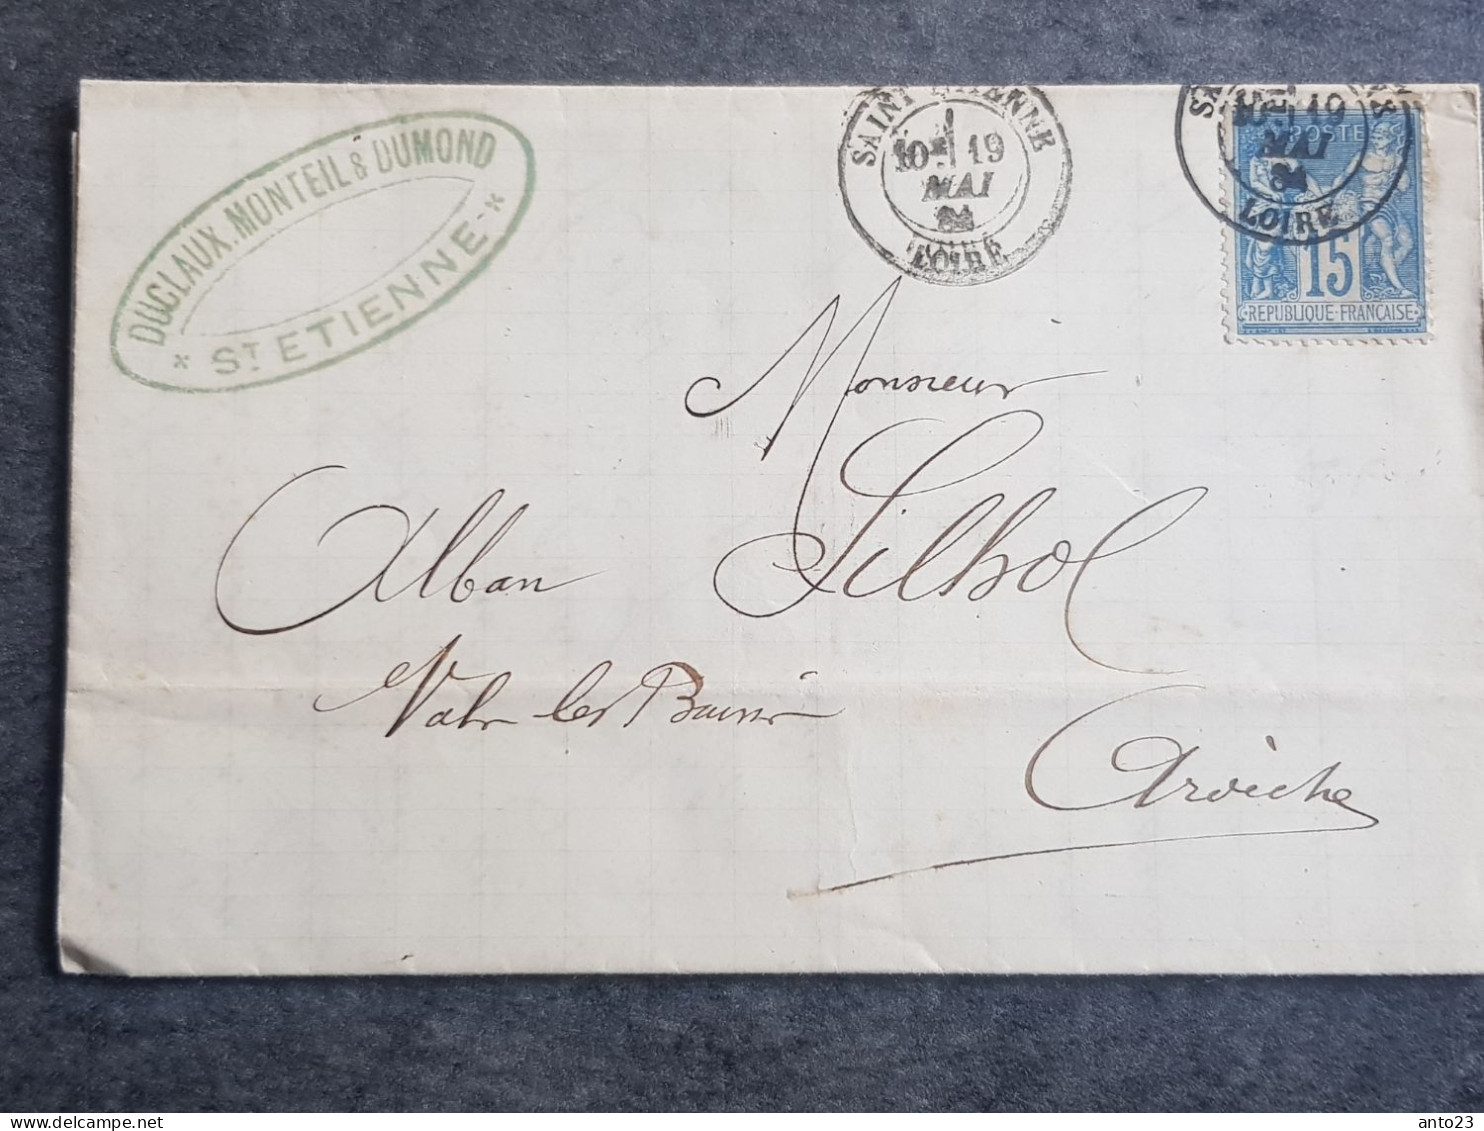 DUCLAUX. MONTEIL & DUMOND
* ST ETIENNE *
SAINT ETIENNE
10 19
MAI
84
LOIRE
10 19
MAI
84
LOIRE
POSTE
15
REPUBLIQUE FRANÇAISE
Monsieur
Alban Silhol
Vals les Bains
Ardèche
anto23